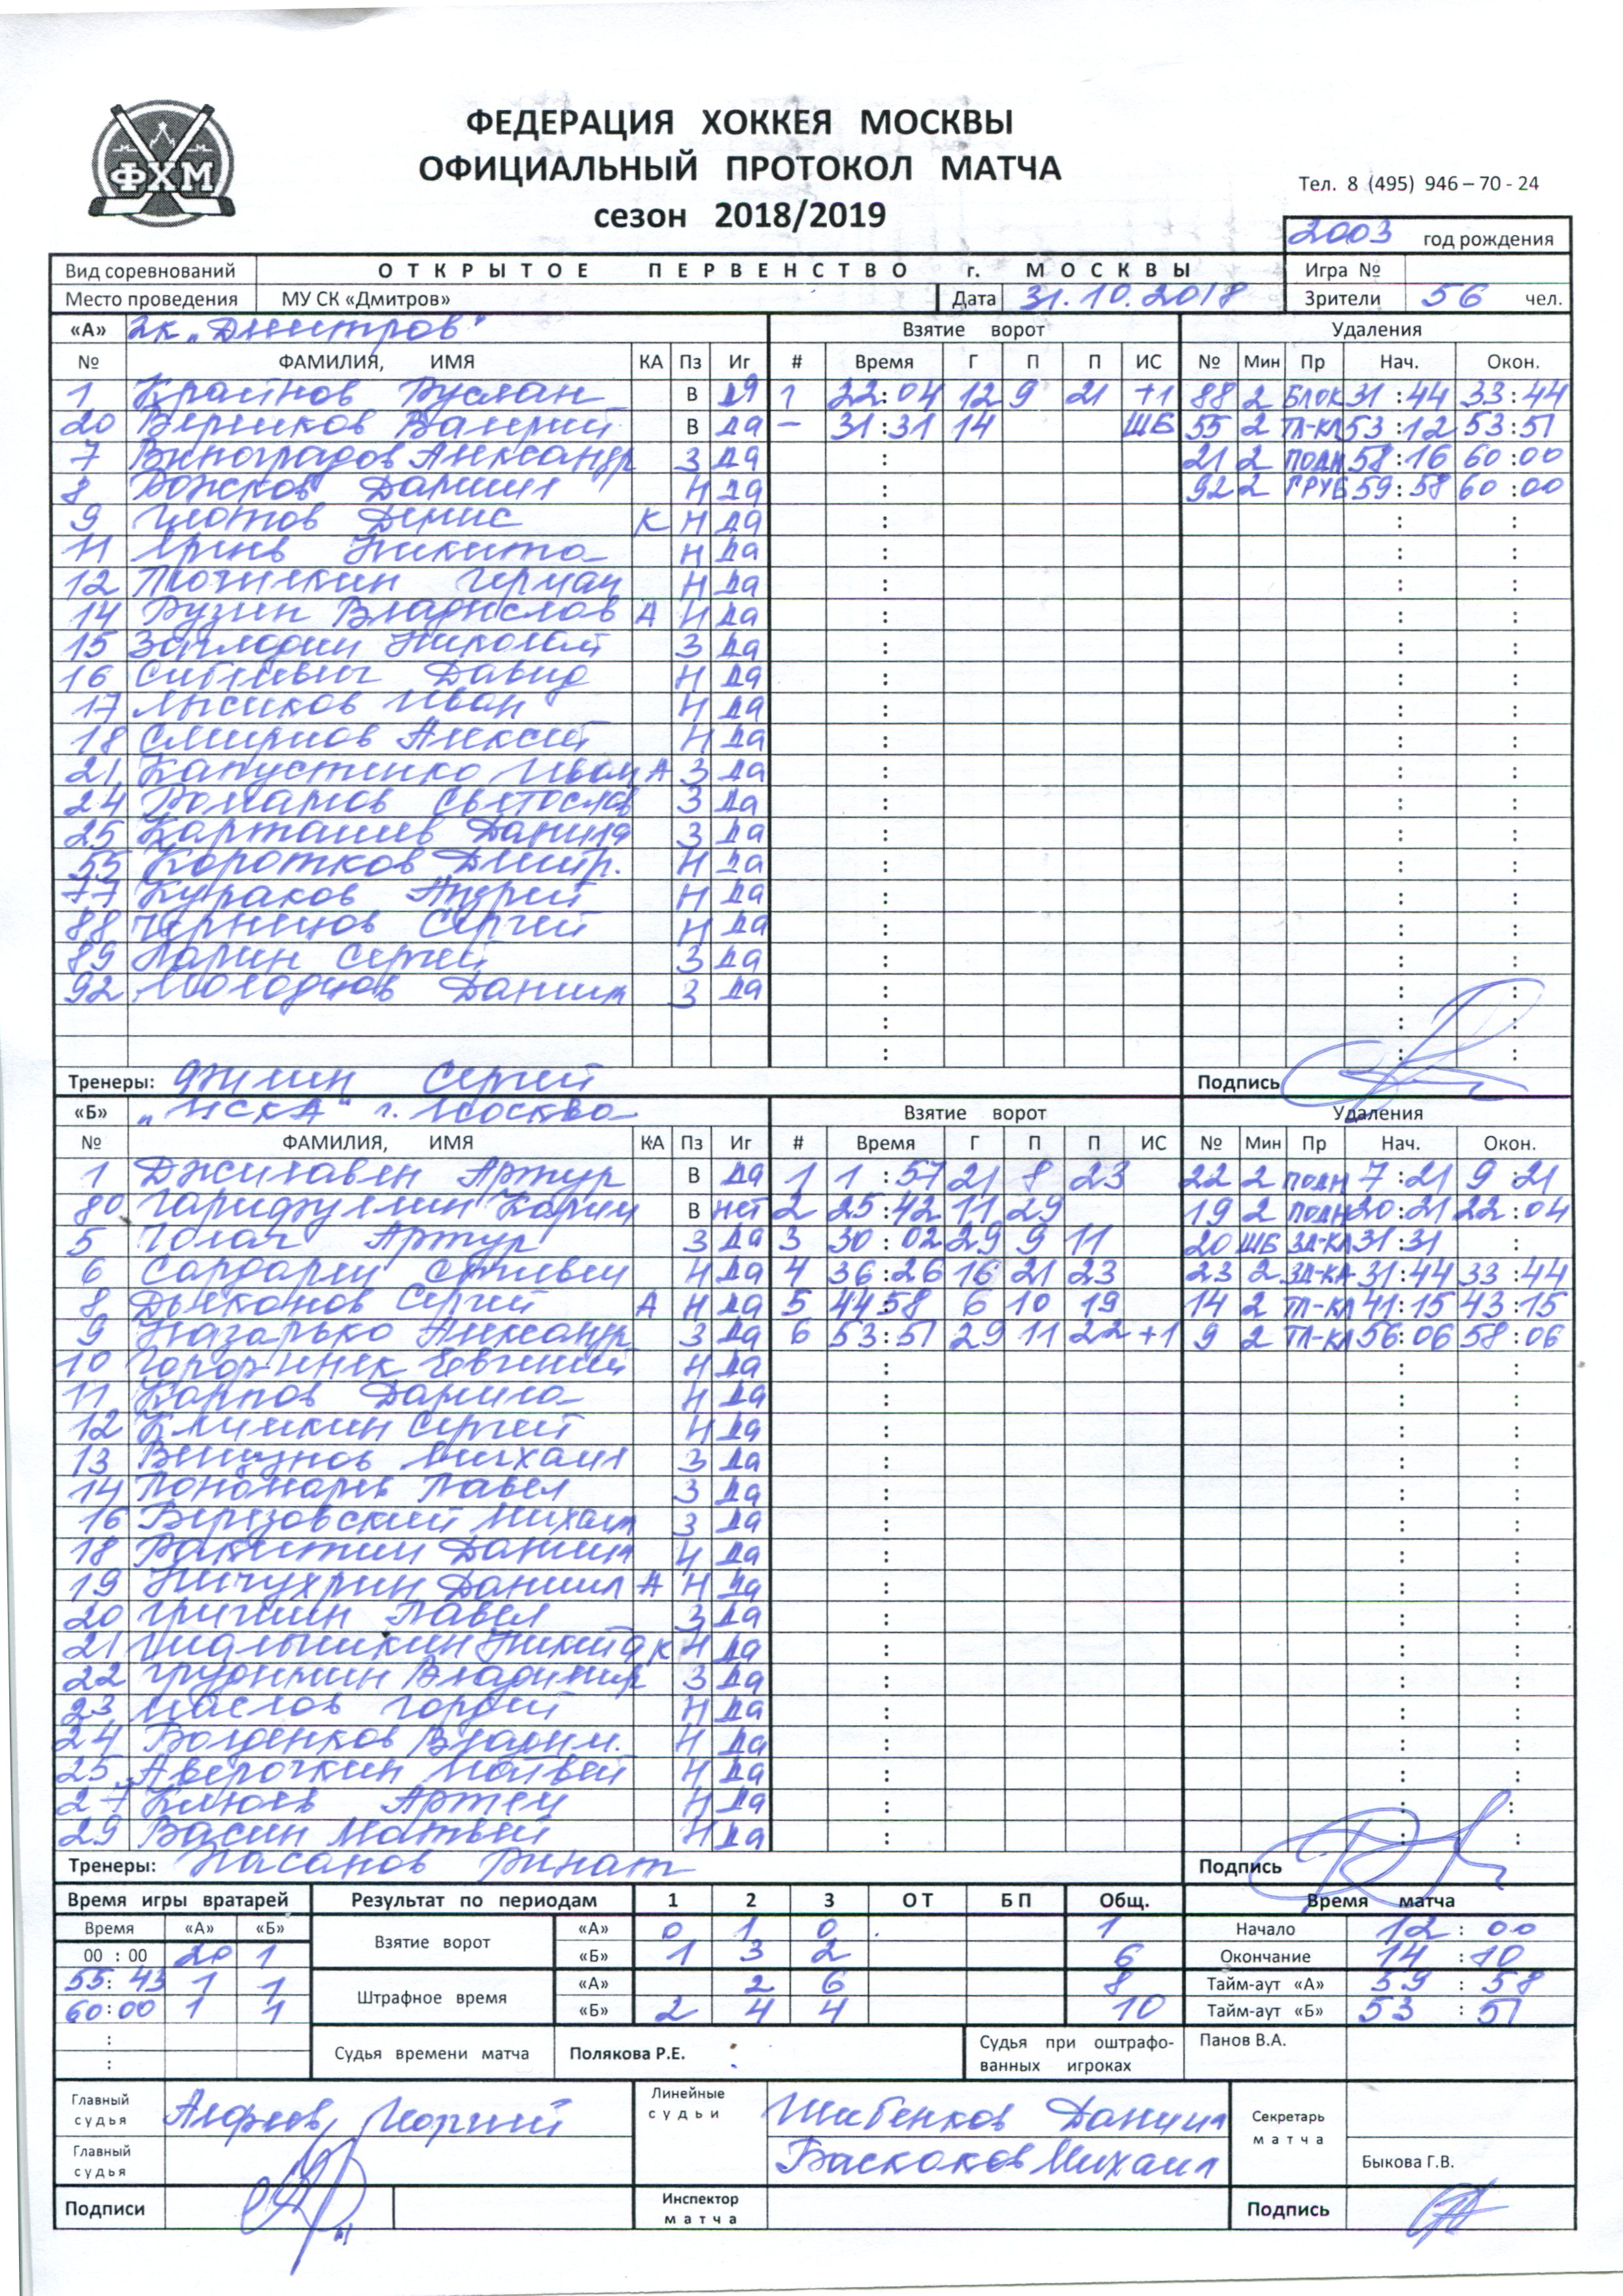 ФХМ
ФЕДЕРАЦИЯ ХОККЕЯ МОСКВЫ
ОФИЦИАЛЬНЫЙ ПРОТОКОЛ МАТЧА
Тел. 8 (495) 946 – 70 - 24
сезон 2018/2019
2003 год рождения
Вид соревнований ОТКРЫТОЕ ПЕРВЕНСТВО г. МОСКВЫ Игра №
Место проведения МУ СК «Дмитров» Дата 31.10.2018 Зрители 56 чел.
«А» ХК „Дмитров" Взятие ворот Удаления
№ ФАМИЛИЯ, ИМЯ КА Пз Иг # Время Г П П ИС № Мин Пр Нач. Окон.
1 Крайнов Руслан В да 1 22:04 12 9 21 +1 88 2 БЛОК 31:44 33:44
20 Валерий В да – 31:31 14 ШБ 55 2 ТЛ-КЛ 53:12 53:51
7 Виноградов Александр З да : 21 2 ПОДН 58:16 60:00
8 Рожков Даниил Н да : 92 2 ГРУБ 59:58 60:00
9 Денис К Н да : : :
11 Никита Н да : : :
12 Точилкин Герман Н да : : :
14 Рузин Владислав А Н да : : :
15 Николай З да : : :
16 Давид Н да : : :
17 Лысиков Иван Н да : : :
18 Смирнов Алексей Н да : : :
21 Капустенко Иван А З да : : :
24 Романов Святослав З да : : :
25 Карташев Данила З да : : :
55 Коротков Дмитр. Н да : : :
77 Кураков Андрей Н да : : :
88 Чернецов Сергей Н да : : :
89 Ларин Сергей З да : : :
92 Молодцов Даниил З да : : :
: : :
: : :
Тренеры: Сергей Подпись
«Б» „ЦСКА" г. Москва Взятие ворот Удаления
№ ФАМИЛИЯ, ИМЯ КА Пз Иг # Время Г П П ИС № Мин Пр Нач. Окон.
1 Артур В да 1 1:57 21 8 23 22 2 ПОДН 7:21 9:21
80 Гарифуллин Карим В нет 2 25:42 11 29 19 2 ПОДН 20:21 22:04
5 Артур З да 3 30:02 29 9 11 20 ШБ ЗД-КЛ 31:31 :
6 Сардарян Н да 4 36:26 16 21 23 23 2 ЗД-КЛ 31:44 33:44
8 Дьяконов Сергей А Н да 5 44:58 6 10 19 14 2 ТЛ-КЛ 41:15 43:15
9 Назарько Александр З да 6 53:51 29 11 22 +1 9 2 ТЛ-КЛ 56:06 58:06
10 Евгений Н да : : :
11 Карпов Данила Н да : : :
12 Климкин Сергей Н да : : :
13 Михаил З да : : :
14 Пономарев Павел З да : : :
16 Березовский Михаил З да : : :
18 Ракитин Даниил Н да : : :
19 Пичухрин Даниил А Н да : : :
20 Гришин Павел З да : : :
21 Никита К Н да : : :
22 Грудинин Владимир З да : : :
23 Маслов Гордей Н да : : :
24 Болденков Владим. Н да : : :
25 Аверочкин Матвей Н да : : :
27 Клюев Артем Н да : : :
29 Васин Матвей Н да : : :
Тренеры: Хасанов Ринат Подпись
Время игры вратарей Результат по периодам 1 2 3 ОТ БП Общ. Время матча
Время «А» «Б» Взятие ворот «А» 0 1 0 1 Начало 12:00
00 : 00 20 1 «Б» 1 3 2 6 Окончание 14:10
55:43 1 1 Штрафное время «А» 2 6 8 Тайм-аут «А» 59:58
60:00 1 1 «Б» 2 4 4 10 Тайм-аут «Б» 53:51
: Судья времени матча Полякова Р.Е. Судья при оштрафо-ванных игроках Панов В.А.
:
Главный судья Андреев Георгий Линейные судьи Шибенков Даниил Секретарь матча
Главный судья Баскаков Михаил Быкова Г.В.
Подписи Инспектор матча Подпись